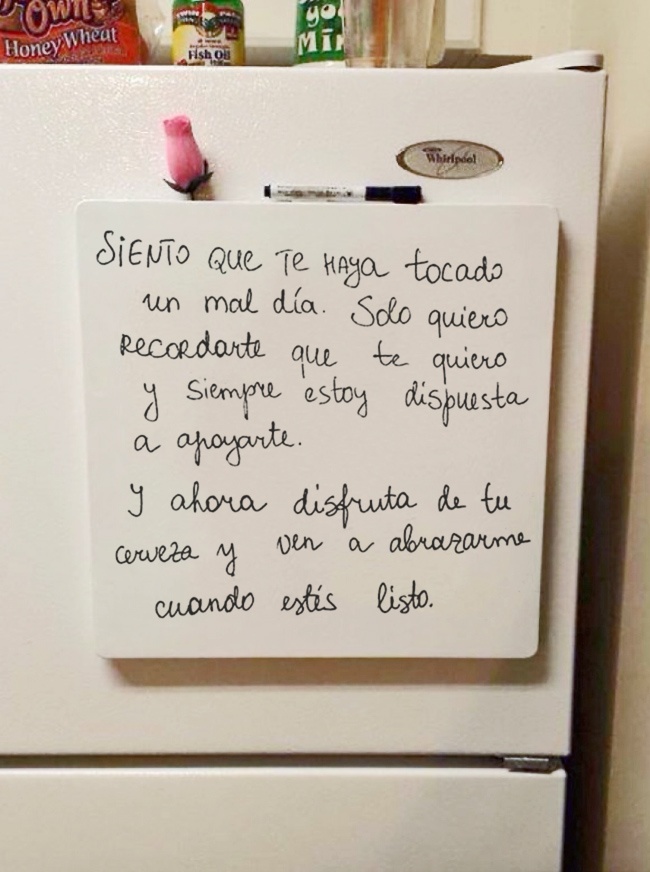 Own
Honey Wheat
TWIN LAB
Fish Oil
yo
Mi
Whirlpool
SIENTO QUE TE HAYA tocado
un mal día. Solo quiero
RECORDARTE que te quiero
y siempre estoy dispuesta
a apoyarte.
Y ahora disfruta de tu
cerveza y ven a abrazarme
cuando estés listo.